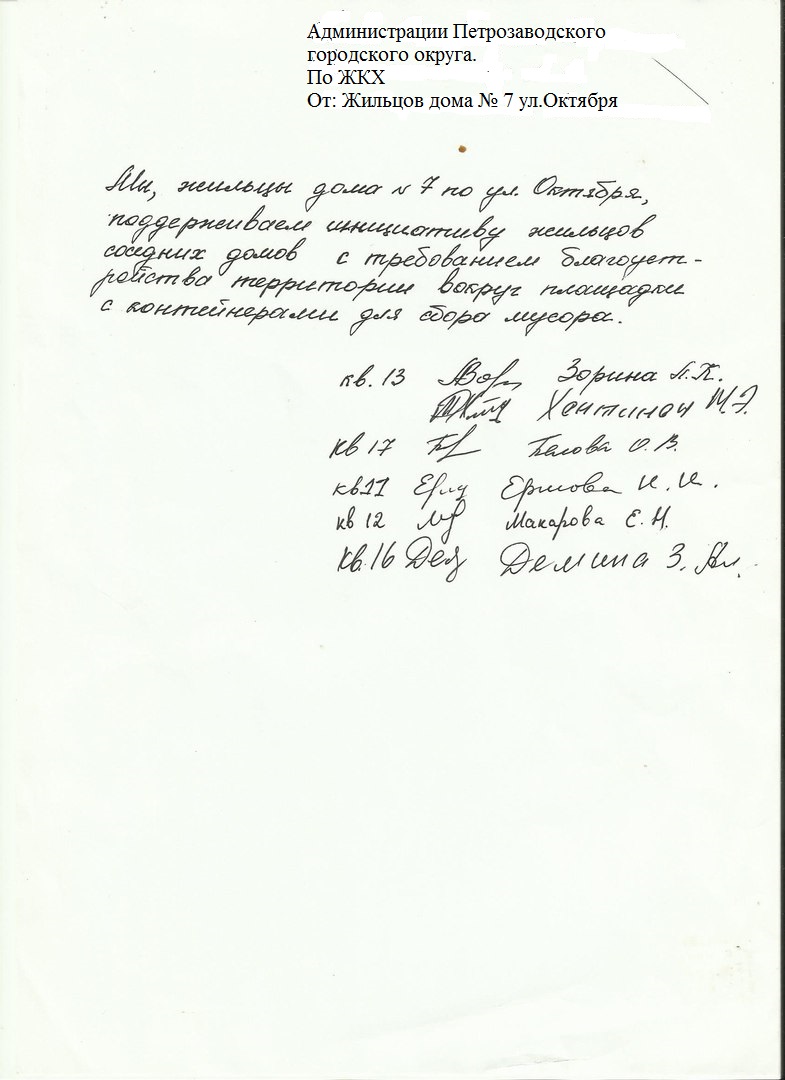 Администрации Петрозаводского
городского округа.
По ЖКХ
От: Жильцов дома № 7 ул.Октября
Мы, жильцы дома № 7 по ул. Октября,
поддерживаем инициативу жильцов
соседних домов с требованием благоуст-
ройства территории вокруг площадки
с контейнерами для сбора мусора.
кв. 13 Зорина Л.К.
М.Э.
кв 17 Белова О.В.
кв11 Ершова И.И.
кв 12 Макарова Е.Н.
кв.16 Демина З.